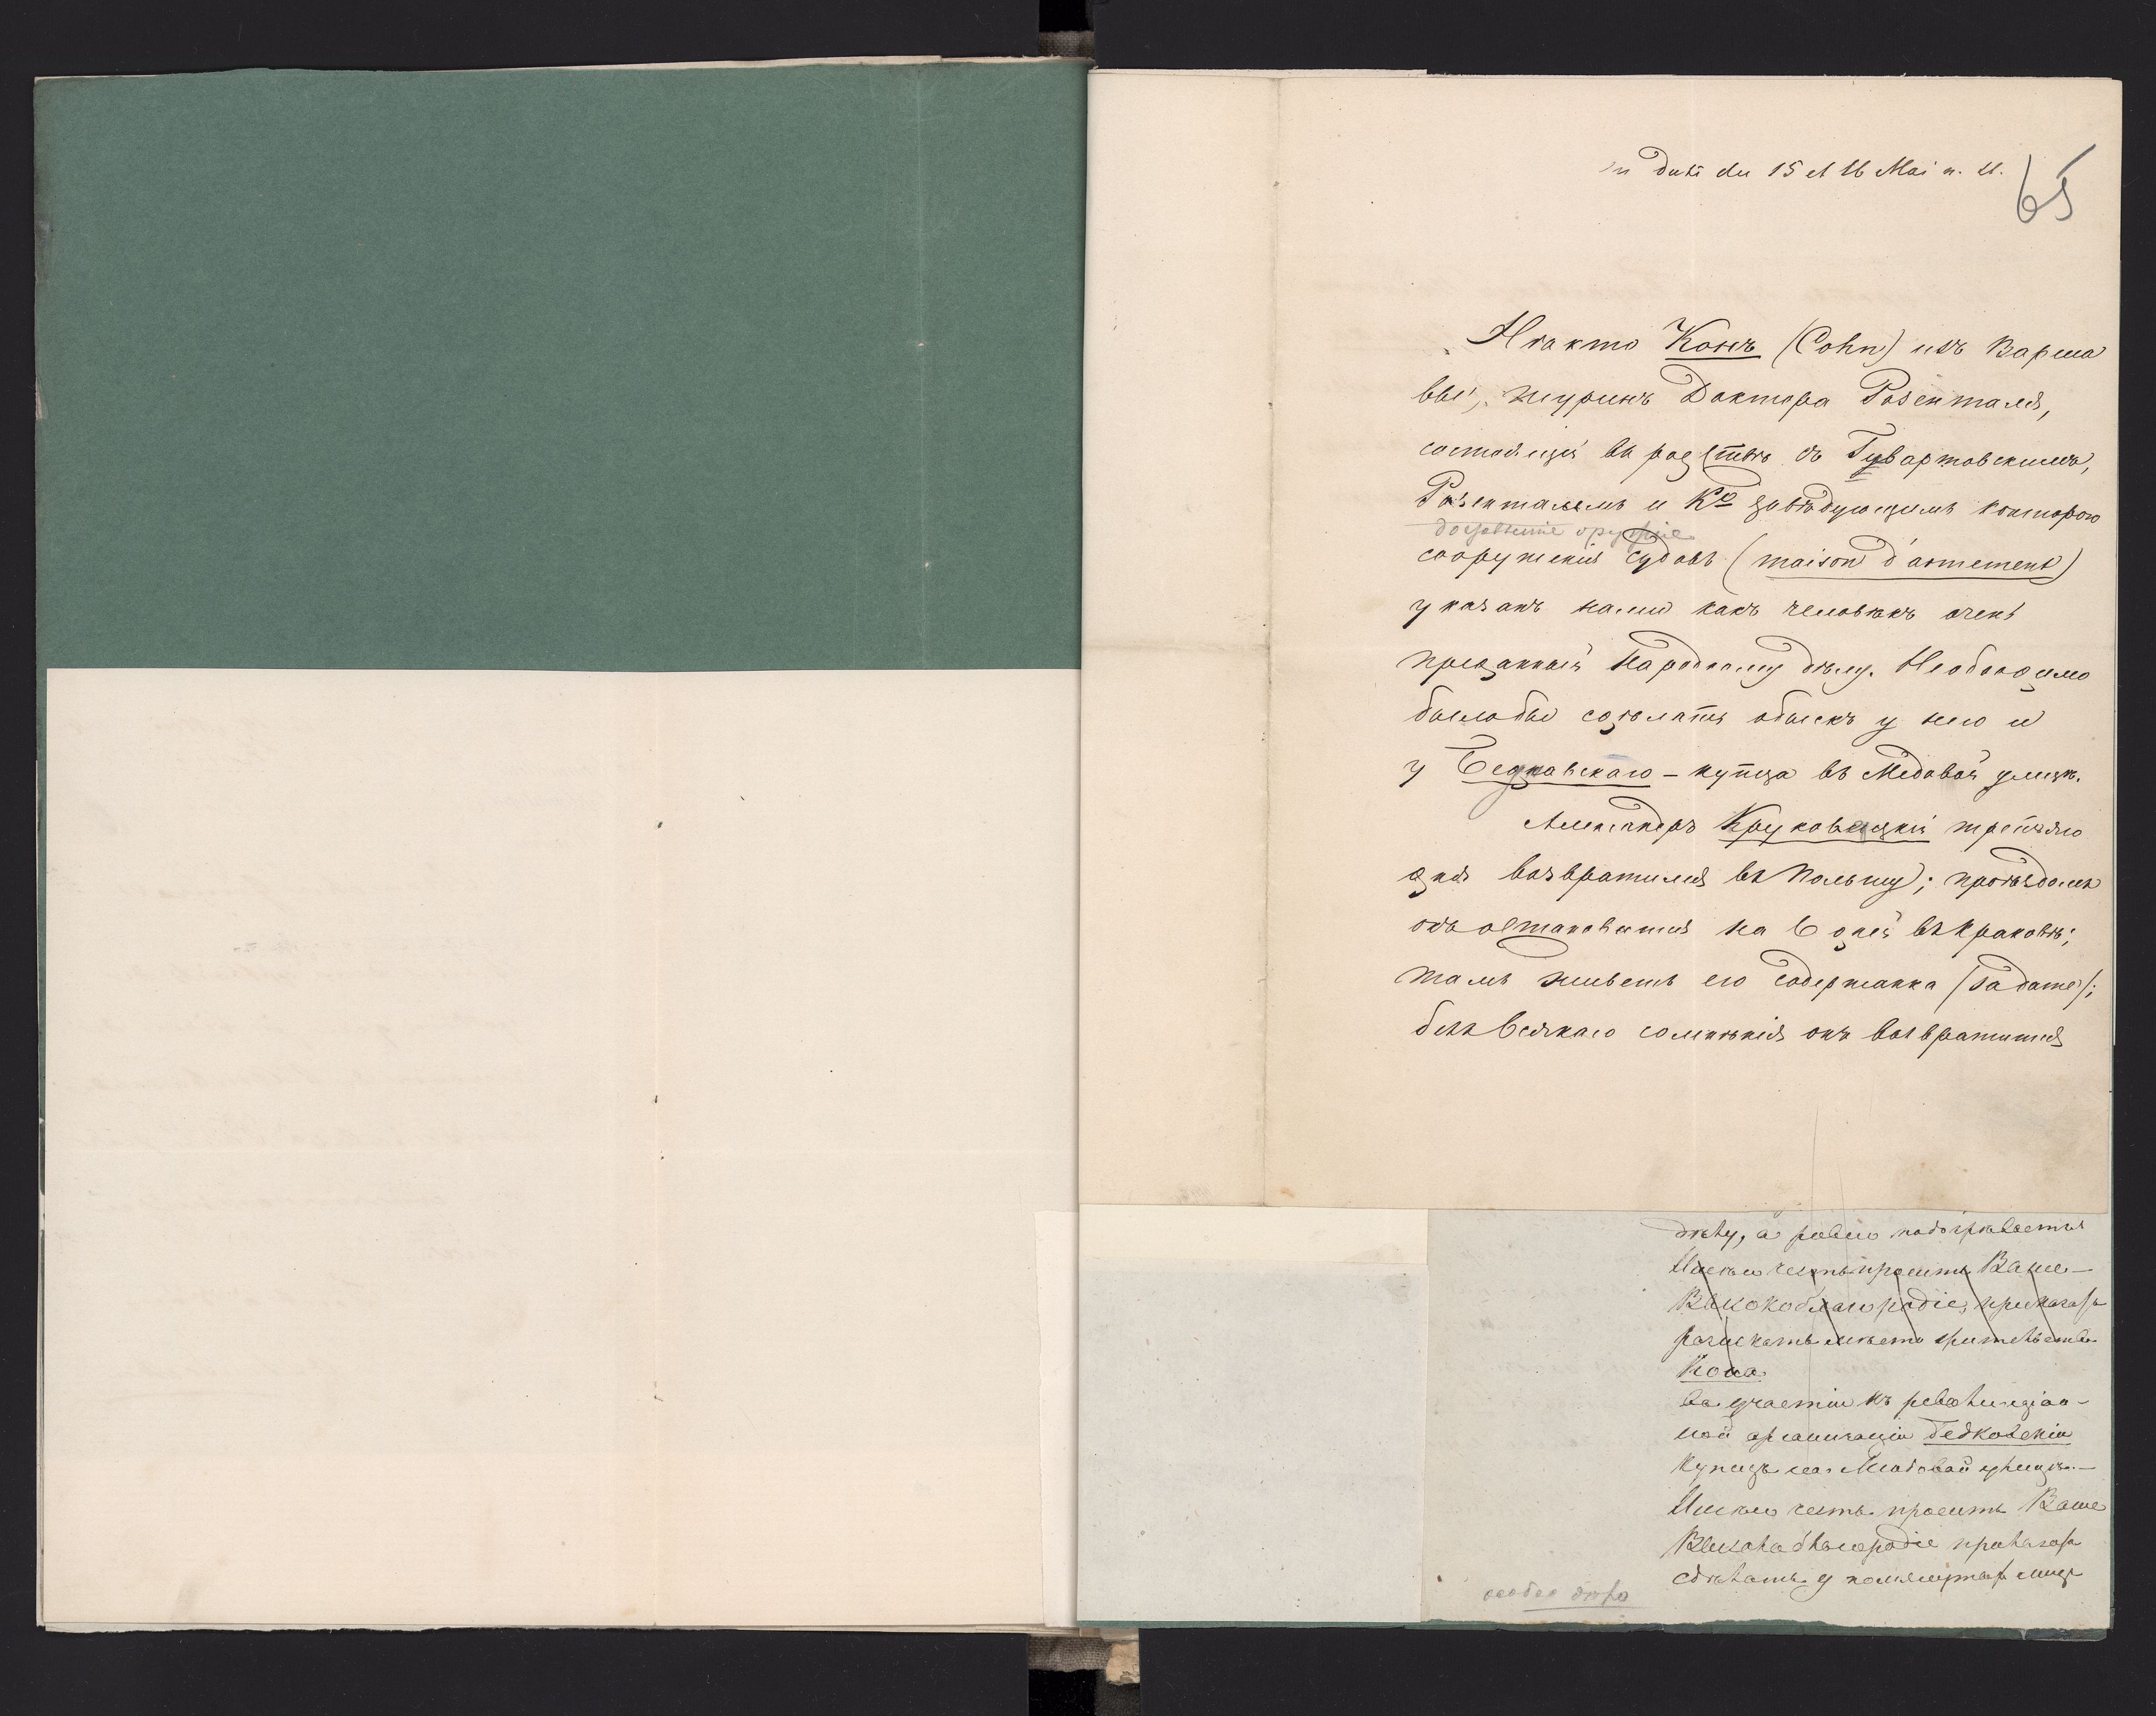 en date du 15 et 16 Mai n. st.
65
Нѣкто Конъ (Cohn) изъ Варша
вы, шуринъ Доктора Розенталя,
состоящій въ родствѣ съ Гувартовскимъ,
Розенталемъ и Кº завѣдующимъ конторою
доставленіе оружіе
сооруженія судовъ (maison d'armement)
указанъ нами какъ человѣкъ очень
преданный Народному дѣлу. Необходимо
было бы сдѣлать обыскъ у него и
у Бедковскаго – купца въ Медовой улицѣ.
Александръ Круковецкій третьяго
дня возвратился въ Польшу; проѣздомъ
онъ остановится на 6 дней въ Краковѣ;
тамъ живетъ его содержанка (sa dame);
безъ всякаго сомнѣнія онъ возвратится
дѣлу, а равно подозрѣвается
Имѣю честь просить Ваше –
Высокоблагородіе, приказать
разыскать мѣсто жительства
Кона.
въ участіи въ революціон–
ной организаціи Бедковскій
Купецъ на Медовой улицѣ. –
Имѣю честь просить Ваше
Высокоблагородіе приказать
сдѣлать у лицъ
особое дѣло